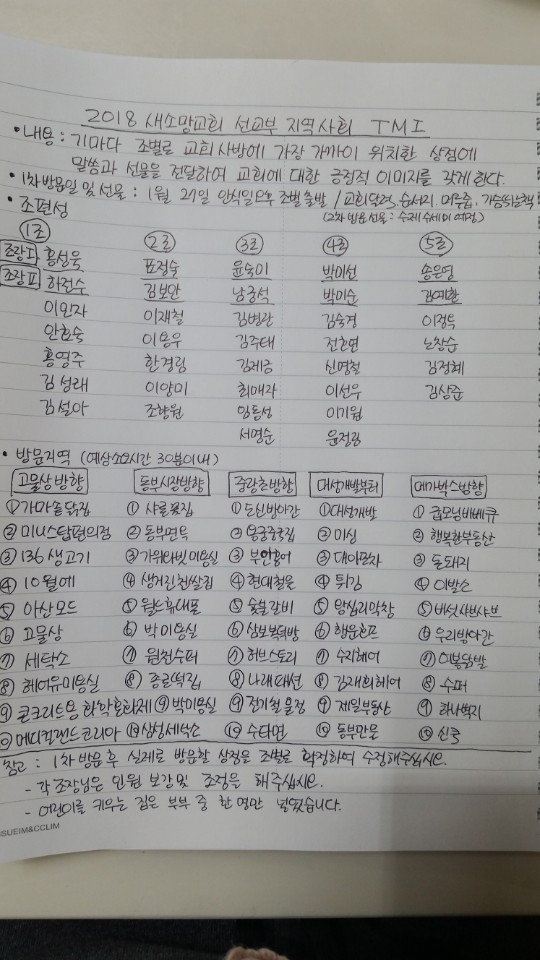 2018 새소망교회 선교부 지역사회 TMI
• 내용 : 기마다 조별로 교회사방에 가장 가까이 위치한 상점에
말씀과 선물을 전달하여 교회에 대한 긍정적 이미지를 갖게 한다.
• 1차방문일 및 선물 : 1월 21일 안식일오후 조별출발 / 교회달력, 물티슈
(2차 방문선물 : 수제수세미 예정)
• 조편성
1조 2조 3조 4조 5조
조장Ⅰ 홍선욱 표정숙 윤숙미 박미선 송은영
조장Ⅱ 하전수 김보안 남궁석 박미순
이인자 이재철 김병란 김숙경 이정욱
안효숙 이용우 김주태 전현연 노창순
홍영주 한경림 김제금 신명철 김정혜
김성래 이양미 최매자 이선우 김상준
김설아 조향원 임동성 이기림
서명순 윤정강
• 방문지역 (예상소요시간 30분이내)
고물상방향 동부시장방향 중랑천방향 대성개발부터 메가박스방향
① 가마솥닭집 ① 샤론꽃집 ① 도인방아간 ① 대성개발 ① 굽모닝바베큐
② 미니스탑편의점 ② 동부면옥 ② 용궁중국집 ② 미싱 ② 행복한부동산
③ 136생고기 ③ 가위다빗미용실 ③ ③ 대야문자 ③ 돈돼지
④ 10월에 ④ 생거진천쌀집 ④ 현대철물 ④ 튀김 ④ 이발소
⑤ 아산모드 ⑤ 월드휴대폰 ⑤ 숯불갈비 ⑤ 왕십리막창 ⑤ 버섯샤브샤브
⑥ 고물상 ⑥ 박미용실 ⑥ 삼보복덕방 ⑥ 행운호프 ⑥ 우리방아간
⑦ 세탁소 ⑦ 원전수퍼 ⑦ 허브스토리 ⑦ 수리헤어 ⑦ 이봉닭발
⑧ 헤어유미용실 ⑧ 종로떡집 ⑧ 나래패션 ⑧ 김재희헤어 ⑧ 수퍼
⑨ 콘크리트용 화학혼화제 ⑨ 박미용실 ⑨ 전기철물점 ⑨ 제일부동산 ⑨ 하나복지
⑩ 메디칼랜드코리아 ⑩ 삼성세탁소 ⑩ 수타면 ⑩ 동부만물 ⑩ 신국
참고 : 1차 방문 후 실제로 방문할 상점을 조별로 확정하여 수정해주십시오.
- 각 조장님은 인원 보강 및 조정을 해주십시오.
- 어린이를 키우는 집은 부부 중 한 명만 넣었습니다.
SUEIM&CCLIM